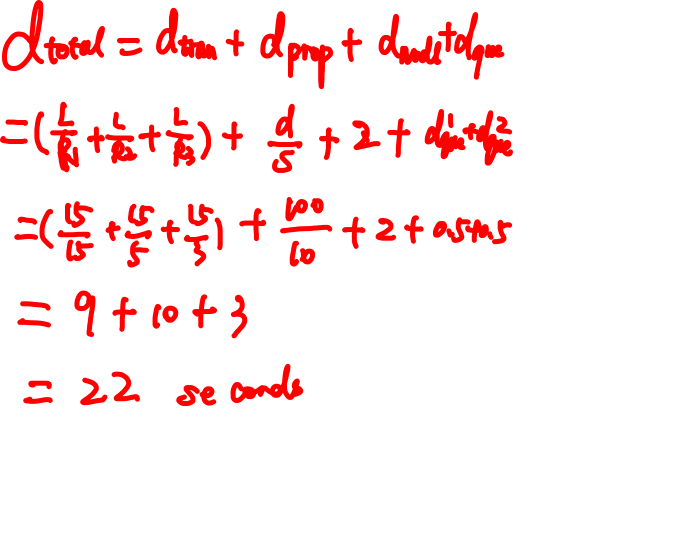 d_total = d_tran + d_prop + d_nodal + d_que
= (L/R1 + L/R2 + L/R3) + d/s + 2 + d_que^1 + d_que^2
= (15/15 + 15/5 + 15/3) + 100/10 + 2 + 0.5+0.5
= 9 + 10 + 3
= 22 seconds